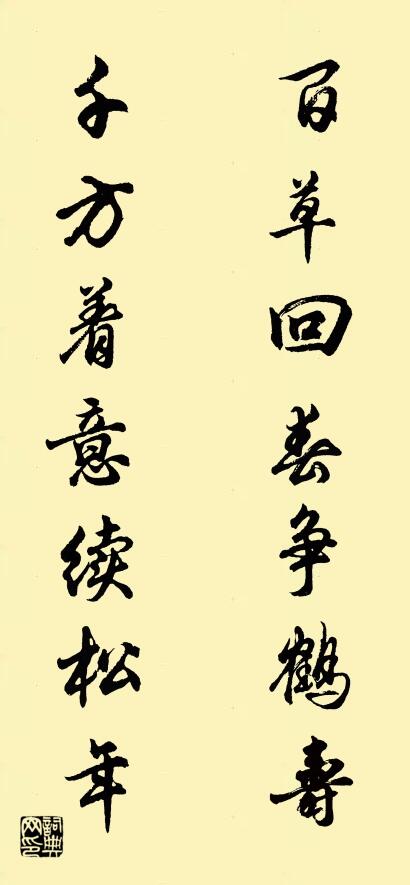 百草回春争鹤寿
千方着意续松年
詞典网印